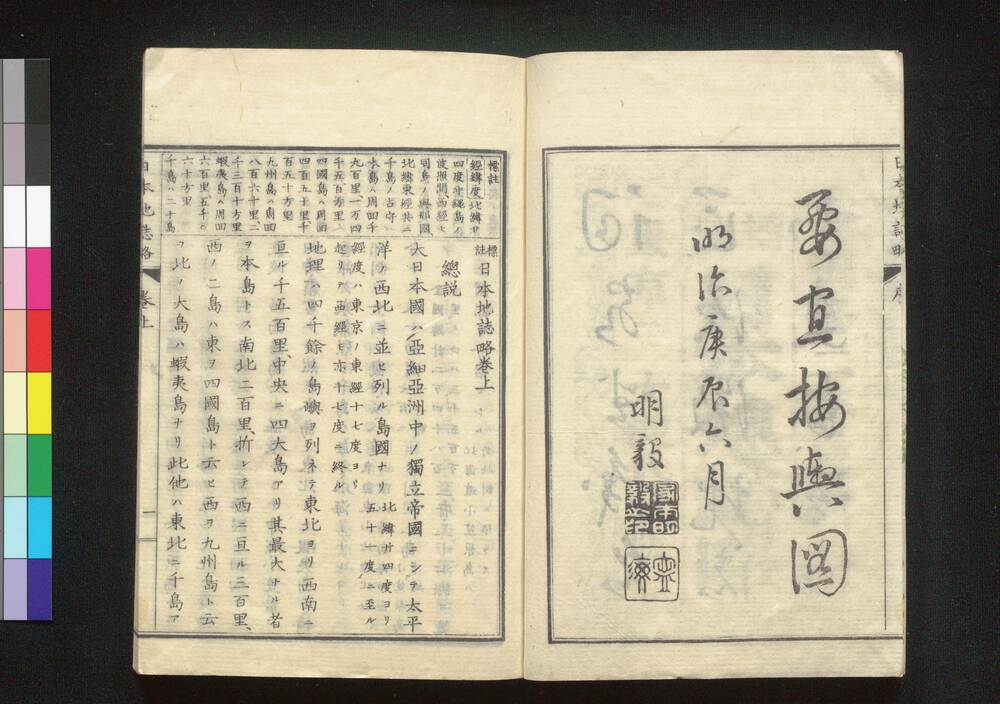 要宜按輿図
明治庚辰六月
明毅
日本地誌略 序
標註
經緯度北緯廿
四度沖繩島ノ
波照間西經七
同島ノ與那國
北緯東經共ニ
千島ノ占守
本島ハ周囲千
九百里一万四
千五百方里
四國島ハ周囲
四百五十里
百五十方里
九州島ハ周囲
八百六十里二
千三百十方里
蝦夷島ハ周囲
六百里五千〇
六十方里
千島ハ二十島
標註日本地誌略卷上
總説
大日本國ハ亞細亞洲中ノ獨立帝國ニシテ太平
洋ノ西北ニ並ヒ列ル島國ナリ北緯廿四度ヨリ五十一度ニ至ル
經度ハ東京ノ東經十七度ヨリ起リテ西經モ亦十七度ニ終ル
地理ハ四千餘ノ島嶼ヲ列ネテ東北ヨリ西南ニ
亘ル千五百里、中央ニ四大島アリ其最大ナル者
ヲ本島トス南北二百里、折レテ西ニ亘ル三百里、
西ノ二島ハ東ヲ四國島ト云ヒ西ヲ九州島ト云
フ北ノ大島ハ蝦夷島ナリ此他ハ東北ニ千島ア
日本地誌略 卷上 一